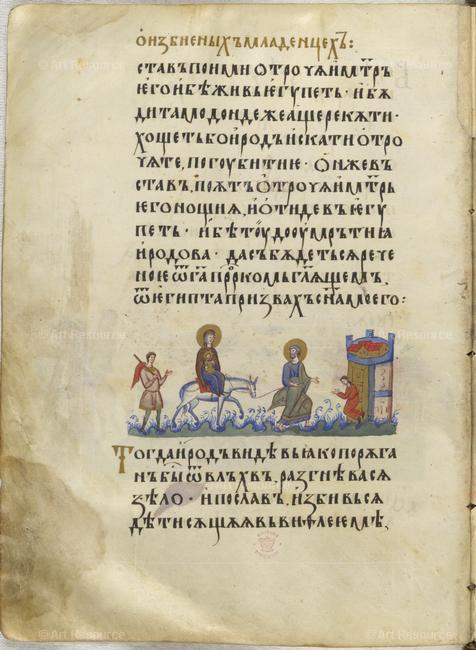 О избиеныхъ младенцехъ:
ставъ поими отрочѧ и мт҃рь
ѥго и бѣжи въ ѥгупетъ · и бѫ
ди тамо дондеже аще рекѫ ти ·
хощетъ бо иродъ искати отро
чѧте, погоубити ѥ · Онже въ
ставъ, поѧтъ отрочѧ и мт҃рь
ѥго нощиѫ, и отиде въ ѥгу
петъ · и бѣ тоу до оумрътиꙗ
иродова · да събѫдетьсѧ рече
ноѥ ѿ г҃а пр҃ркомь гл҃ѧщемь,
ѿ египта призвахъ с҃на моего:
Тогда иродъ видѣвъ ꙗко порѫга
нъ бы ѿ влъхвъ, разгнѣва сѧ
ѕѣло · и пославъ, изби въсѧ
дѣти сѫщѫѫ въ виѳлеѥмѣ,
© Art Resource
© Art Resource
© Art Resource
© Art Resource
© Art Resource
© Art Resource